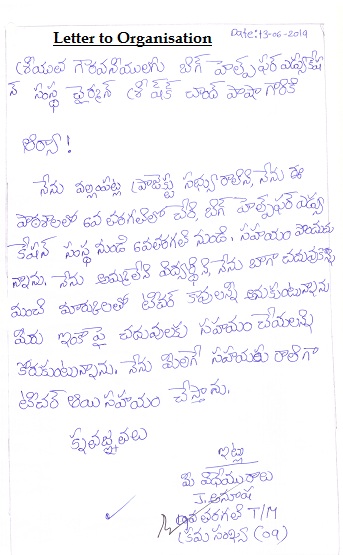 Letter to Organisation
Date:13-06-2019
శ్రీయుత గౌరవనీయులగు బిగ్ హెల్ప్ ఫర్ ఎడ్యుకేష
న్ సంస్థ చైర్మన్ శ్రీ షేక్ చాంద్ పాషా గారికి
నేను వల్లాపట్ల ప్రాజెక్ట్ సభ్యురాలిని, నేను ఈ
పాఠశాలలో 6వ తరగతిలో చేరి, బిగ్ హెల్ప్ ఫర్ ఎడ్యు
కేషన్ సంస్థ నుండి 6వతరగతి నుండి. సహాయం పొందుతు
న్నాను. నేను అమ్మలేని విద్యార్థిని, నేను బాగా చదువుకొని
మంచి మార్కులతో టీచర్ కావాలని అనుకుంటున్నాను
మీరు ఇంకా పై చదువులకు సహాయం చేయాలని
కోరుకుంటున్నాను. నేను మీలాగే సహాయకు రాలిగా
టీచర్ అయి సహాయం చేస్తాను.
కృతజ్ఞతలు
ఇట్లు
మీ విధేయురాలు
J. అనూష
తరగతి T/M
(క్రమ సంఖ్య (09)